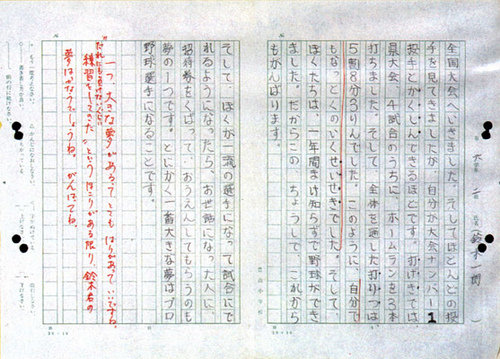 全国大会へいきました。そしてほとんどの投
手を見てきましたが、自分が大会ナンバー1
投手とかくしんできるほどです。打げきでは、
県大会 4試合のうちに、ホームランを3本
打ちました。そして、全体を通した打りつは、
5割8分3りんでした。このように、自分で
もなっとくのいくせいせきでした。そして、
ぼくたちは、一年間まけ知らずで野球ができ
ました。だからこの、ちょうしで、これから
もがんばります。
そして、ぼくが一流の選手になって試合にで
れるようになったら、お世話になった人に、
招待券をくばって、おうえんしてもらうのも
夢の1つです。とにかく一番大きな夢はプロ
野球選手になることです。
一つ、大きな夢があって、とても はりがあって いいですね。
"だれにもまけないだけの
練習をしてきた"というほこりがある限り、鈴木君の
夢はかなうでしょうね。がんばってね。